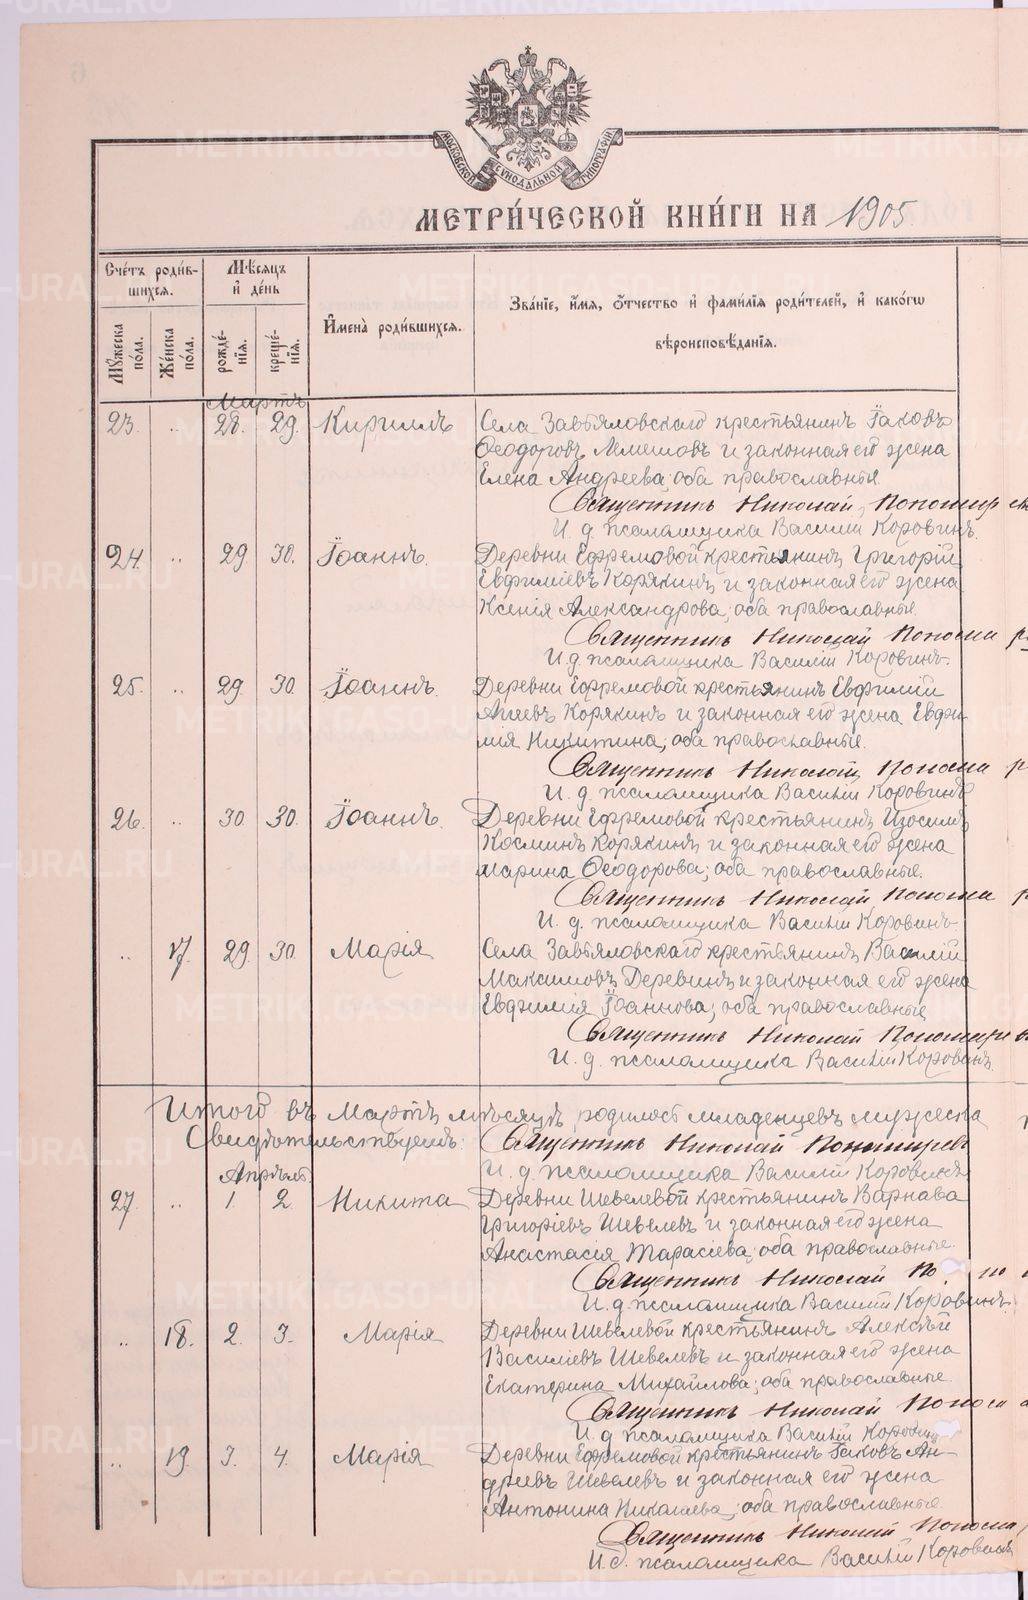 МОСКОВСКОЙ СѴНОДАЛЬНОЙ ТИПОГРАФІИ
МЕТРИ́ЧЕСКОЙ КНИ́ГИ НА 1905.
Сче́тъ роди́в-
шихся.
Мѣ́сяцъ
и҆ де́нь
И҆мена̀ роди́вшихся.
Зва́нїе, и҆́мя, ѻ҆́тчество и҆ фами́лїѧ роди́телей, и҆ какѡ́гѡ
вѣроисповѣ́данїѧ.
Мꙋ́жеска по́ла.
Же́нска по́ла.
рожде́-нїѧ.
креще́-нїѧ.
Мартъ
23. „ 28. 29. Кириллъ Села Завьяловскаго крестьянинъ Іаковъ
Ѳеодоровъ Лемешовъ и законная его жена
Елена Андреева; оба православныя
Священникъ Николай
И. д. псаломщика Василій Коровинъ.
24. „ 29 30. Іоаннъ. Деревни Ефремовой крестьянинъ Григорій
Евфиміевъ Корякинъ и законная его жена
Ксенія Александрова; оба православные
Священникъ Николай
И. д. псаломщика Василій Коровинъ.
25. „ 29 30. Іоаннъ. Деревни Ефремовой крестьянинъ Евфимій
Агеевъ Корякинъ и законная его жена Евфи-
мія Никитина; оба православные.
Священникъ Николай
И. д. псаломщика Василій Коровинъ
26. „ 30. 30. Іоаннъ. Деревни Ефремовой крестьянинъ Изосимъ
Косминъ Корякинъ и законная его жена
Марина Ѳеодорова; оба православные.
Священникъ Николай
И. д. псаломщика Василій Коровинъ.
„ 17. 29. 30. Марія Села Завьяловскаго крестьянинъ Василій
Максимовъ Деревинъ и законная его жена
Евфимія Іоаннова; оба православные
Священникъ Николай
И. д. псаломщика Василій Коровинъ
Итого въ Мартѣ мѣсяцѣ родилось младенцевъ мужеска
Свидѣтельствуемъ: Священникъ Николай Пономаревъ
И. д. псаломщика Василій Коровинъ
Апрѣль.
27. „ 1. 2. Никита Деревни Шевелевой крестьянинъ Варнава
Григоріевъ Шевелевъ и законная его жена
Анастасія Тарасіева; оба православные.
Священникъ Николай
И. д. псаломщика Василій Коровинъ.
„ 18. 2. 3. Марія Деревни Шевелевой крестьянинъ Алексѣй
Василіевъ Шевелевъ и законная его жена
Екатерина Михайлова; оба православные.
Священникъ Николай
И. д. псаломщика Василій Коровинъ
„ 19. 3. 4. Марія Деревни Ефремовой крестьянинъ Іаковъ Ан-
дреевъ Шевелевъ и законная его жена
Антонина Николаева; оба православные.
Священникъ Николай
И. д. псаломщика Василій Коровинъ